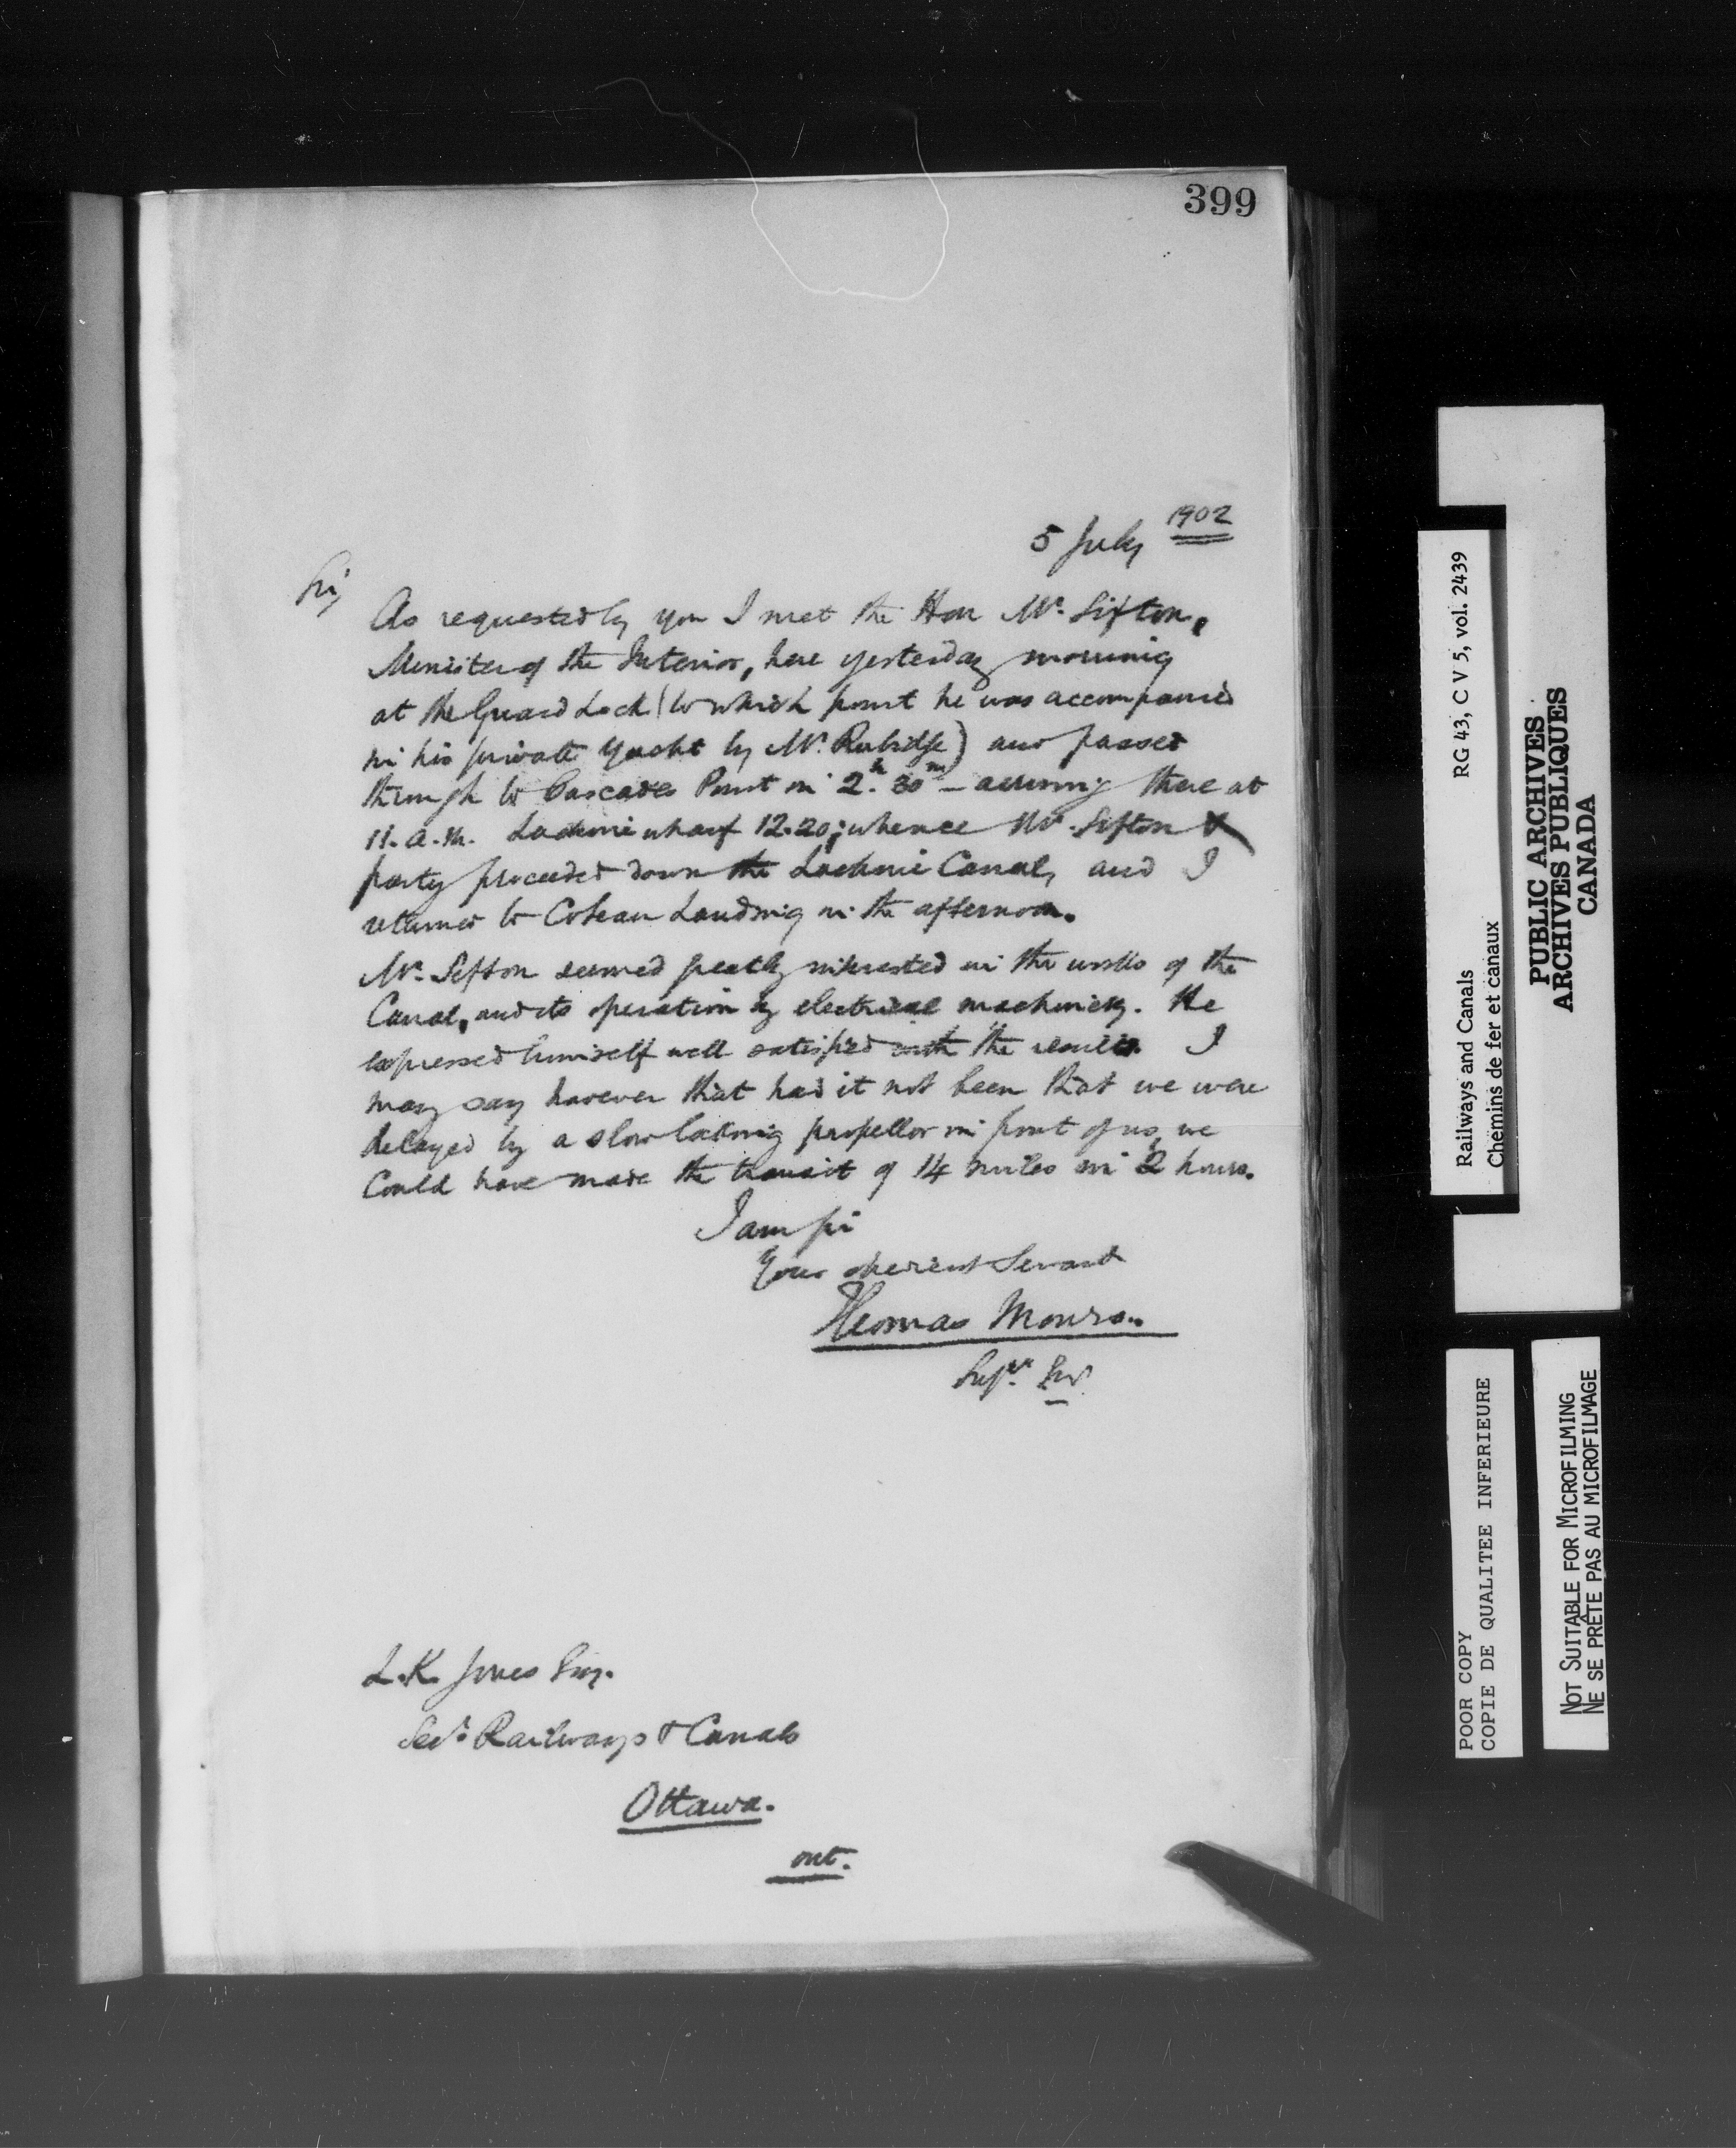 399
5 July 1902
Sir,
As requested by you I met the Hon Mr. Sifton,
Minister of the Interior, here yesterday morning
at the Guard Lock (to which point he was accompanied
in his private yacht by Mr. Rubidge) and passed
through to Cascades Point in 2.h 30m – arriving there at
11. a.m. Lachine wharf 12.20; whence Mr. Sifton &
party proceeded down the Lachine Canal, and I
returned to Coteau Landing in the afternoon.
Mr. Sifton seemed greatly interested in the works of the
Canal, and its operation by electrical machinery. He
expressed himself well satisfied with the results. I
may say however that had it not been that we were
delayed by a slow locking propellor in front of us, we
could have made the transit of 14 miles in 2 hours.
I am sir
Your obedient Servant
Thomas Monro.
Supg. Eng.
L.K. Jones Esq.
Secy. Railways & Canals
Ottawa.
Ont.
Railways and Canals RG 43, C V 5, vol. 2439
Chemins de fer et canaux
PUBLIC ARCHIVES
ARCHIVES PUBLIQUES
CANADA
POOR COPY
COPIE DE QUALITEE INFERIEURE
NOT SUITABLE FOR MICROFILMING
NE SE PRÊTE PAS AU MICROFILMAGE